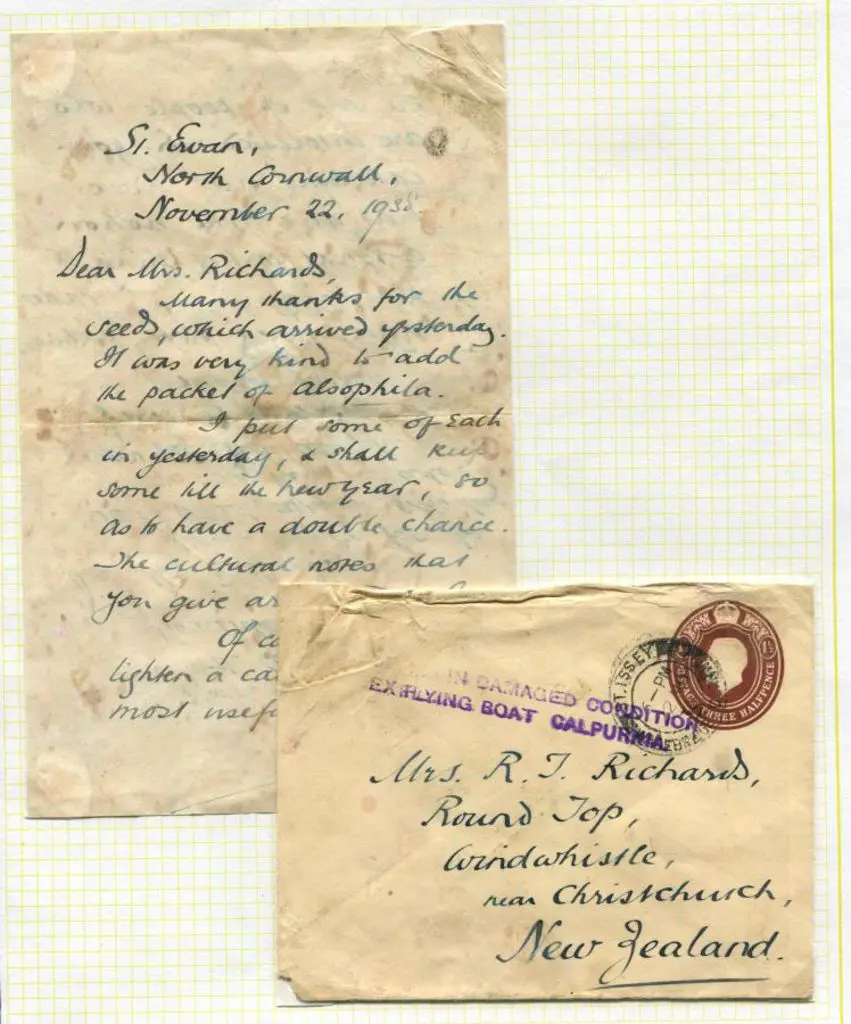 St. Ervan,
North Cornwall,
November 22, 1938.
Dear Mrs. Richards,
Many thanks for the
seeds, which arrived yesterday.
It was very kind to add
the packet of Alsophila.
I put some of each
in yesterday, & shall keep
some till the New Year, so
as to have a double chance.
The cultural notes that
you give ar
Of c
lighten a ca
most usef
IN DAMAGED CONDITION
EX FLYING BOAT CALPURNIA.
ST. ISSEY
POSTAGE THREE HALFPENCE
Mrs. R. T. Richards,
Round Top,
Windwhistle,
near Christchurch,
New Zealand.